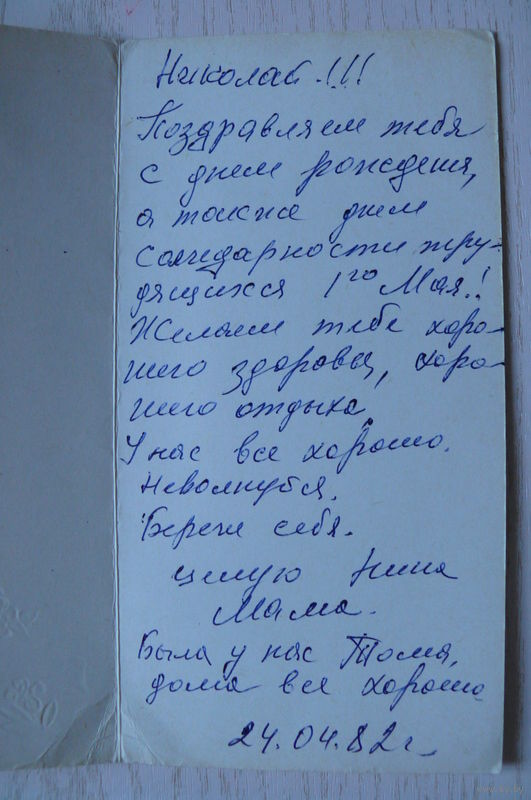 Николай!!!
Поздравляем тебя
с днем рождения,
а также днем
солидарности тру-
дящихся 1го Мая!
Желаем тебе хоро-
шего здоровья, хоро-
шего отдыха,
У нас все хорошо.
Неволнуйся.
Береги себя.
целую Нина
Мама.
Была у нас Тома,
дома все хорошо
24.04.82г.